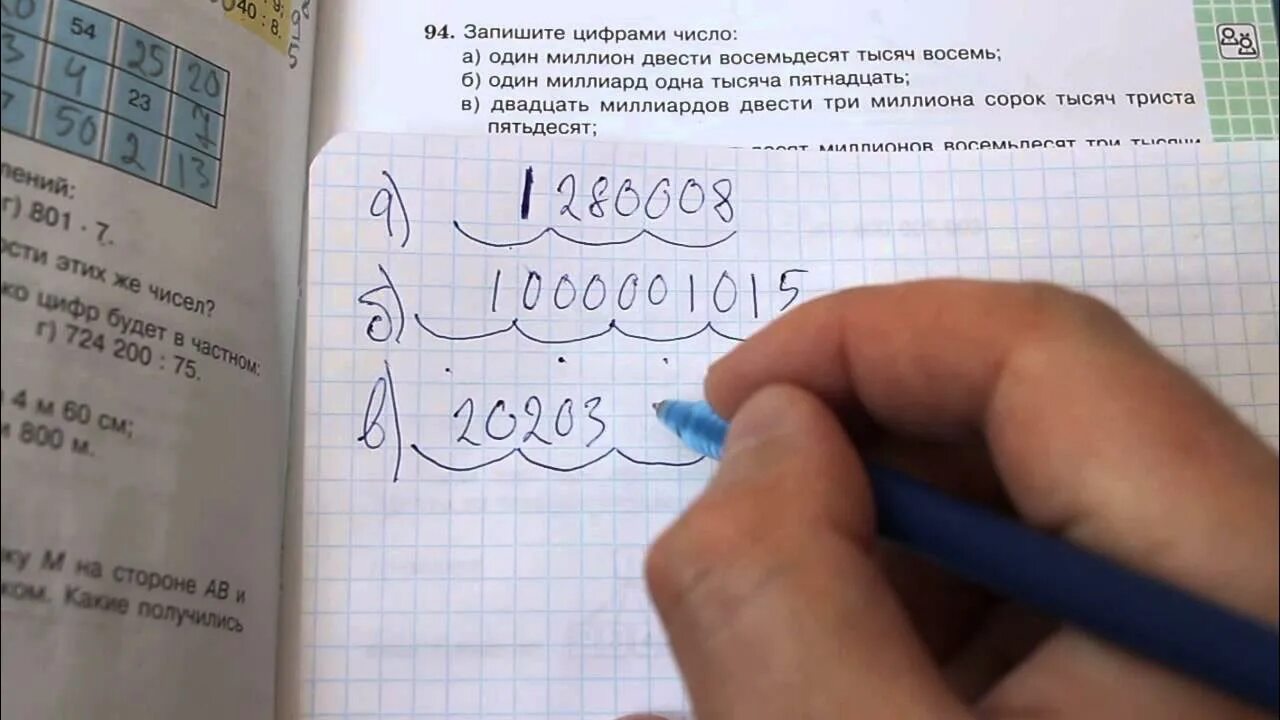 40 : 8.
54 25 20
4 23 7
50 2 13
г) 801 · 7.
этих же чисел?
цифр будет в частном:
г) 724 200 : 75.
4 м 60 см;
800 м.
М на стороне АВ и
Какие получились
94. Запишите цифрами число:
а) один миллион двести восемьдесят тысяч восемь;
б) один миллиард одна тысяча пятнадцать;
в) двадцать миллиардов двести три миллиона сорок тысяч триста
пятьдесят;
миллионов восемьдесят три тысячи
а) 1 280008
б) 1000001015
в) 20203